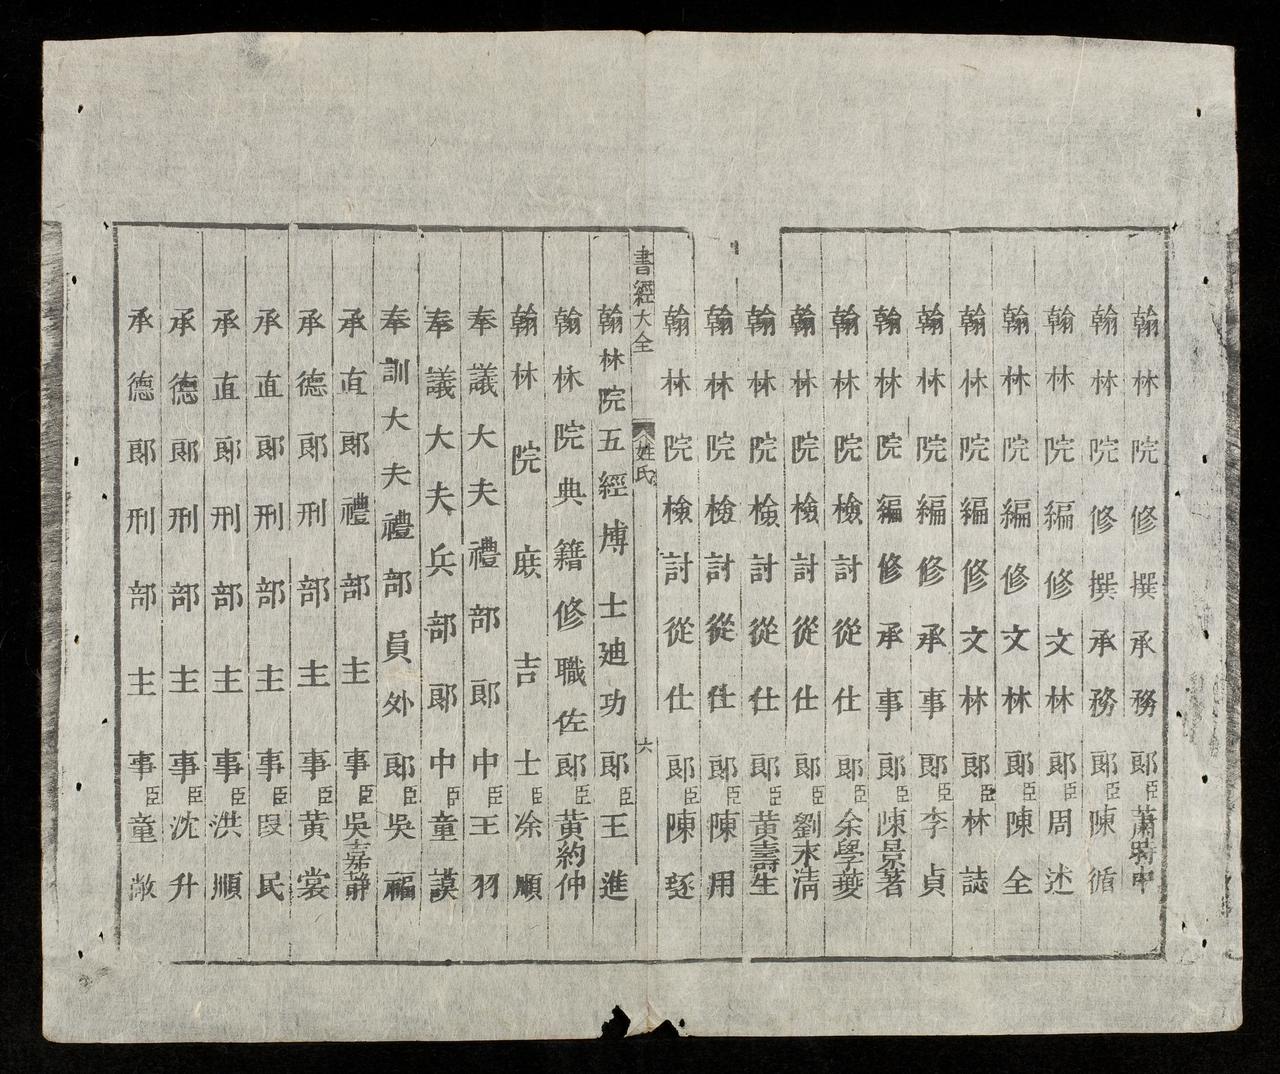 翰林院修撰承務郞臣蕭時中
翰林院修撰承務郞臣陳循
翰林院編修文林郞臣周述
翰林院編修文林郞臣陳全
翰林院編修文林郞臣林誌
翰林院編修承事郞臣李貞
翰林院編修承事郞臣陳景著
翰林院檢討從仕郞臣余學夔
翰林院檢討從仕郞臣劉永清
翰林院檢討從仕郞臣黃壽生
翰林院檢討從仕郞臣陳用
翰林院檢討從仕郞臣陳璲
書經大全 姓氏 六
翰林院五經博士廸功郞臣王進
翰林院典籍修職佐郞臣黃約仲
翰林院庶吉士臣涂順
奉議大夫禮部郞中臣王羽
奉議大夫兵部郞中臣童謨
奉訓大夫禮部員外郞臣吳福
承直郞禮部主事臣吳嘉靜
承德郞刑部主事臣黃裳
承直郞刑部主事臣段民
承直郞刑部主事臣洪順
承德郞刑部主事臣沈升
承德郞刑部主事臣童敞